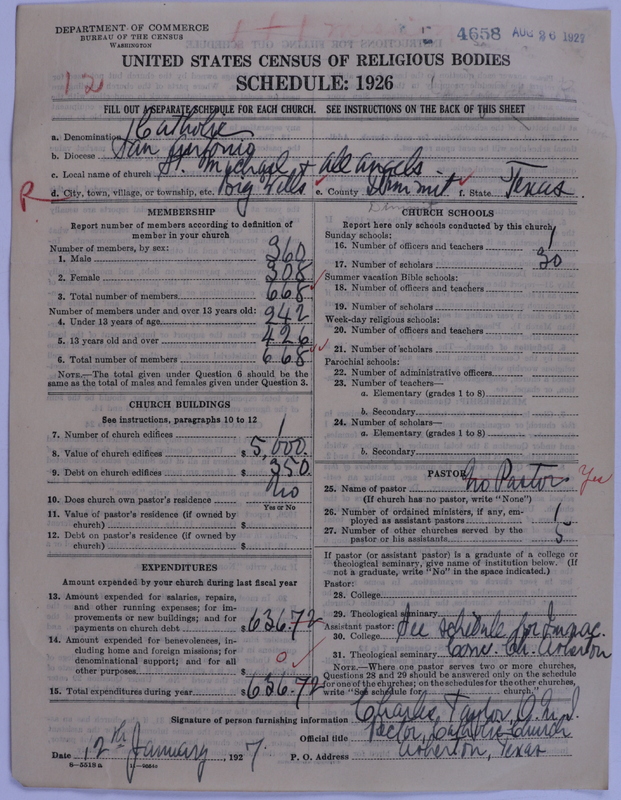 DEPARTMENT OF COMMERCE
BUREAU OF THE CENSUS
WASHINGTON
4658 AUG 26 1927
UNITED STATES CENSUS OF RELIGIOUS BODIES
SCHEDULE: 1926
12
FILL OUT A SEPARATE SCHEDULE FOR EACH CHURCH. SEE INSTRUCTIONS ON THE BACK OF THIS SHEET
a. Denomination Catholic
b. Diocese San Antonio
c. Local name of church St. Michael & all angels
R d. City, town, village, or township, etc. Big Wells e. County Dimmit f. State Texas
Dimmit
MEMBERSHIP
Report number of members according to definition of
member in your church
Number of members, by sex:
1. Male 360
2. Female 308
3. Total number of members 668
Number of members under and over 13 years old:
4. Under 13 years of age 942
5. 13 years old and over 426
6. Total number of members 668
NOTE.—The total given under Question 6 should be
same as the total of males and females given under Question 3.
CHURCH BUILDINGS
See instructions, paragraphs 10 to 12
7. Number of church edifices 1
8. Value of church edifices $ 5,000.
9. Debt on church edifices $ 350
10. Does church own pastor's residence No
Yes or No
11. Value of pastor's residence (if owned by
church) $
12. Debt on pastor's residence (if owned by
church) $
EXPENDITURES
Amount expended by your church during last fiscal year
13. Amount expended for salaries, repairs,
and other running expenses; for im-
provements or new buildings; and for
payments on church debt $ 636.72
14. Amount expended for benevolences, in-
cluding home and foreign missions; for
denominational support; and for all
other purposes 0
15. Total expenditures during year $ 636.72
CHURCH SCHOOLS
Report here only schools conducted by this church
Sunday schools:
16. Number of officers and teachers 1
17. Number of scholars 30
Summer vacation Bible schools:
18. Number of officers and teachers
19. Number of scholars
Week-day religious schools:
20. Number of officers and teachers
21. Number of scholars
Parochial schools:
22. Number of administrative officers
23. Number of teachers—
a. Elementary (grades 1 to 8)
b. Secondary
24. Number of scholars—
a. Elementary (grades 1 to 8)
b. Secondary
PASTOR
25. Name of pastor No Pastor Yes
(If church has no pastor, write "None")
26. Number of ordained ministers, if any, em-
ployed as assistant pastors 1
27. Number of other churches served by the
pastor or his assistants 5
If pastor (or assistant pastor) is a graduate of a college or
theological seminary, give name of institution below. (If
not a graduate, write "No" in the space indicated.)
Pastor:
28. College
29. Theological seminary
Assistant pastor:
30. College See schedule for Immac.
31. Theological seminary Conc. Ch. Asherton
NOTE.—Where one pastor serves two or more churches,
Questions 28 and 29 should be answered only on the schedule
for one of the churches; on the schedules for the other churches,
write "See schedule for church."
Signature of person furnishing information Charles Taylor, O.M.I.
Official title Rector, Catholic Church
Date 12th January, 1927 P. O. Address Asherton, Texas
8-5519a